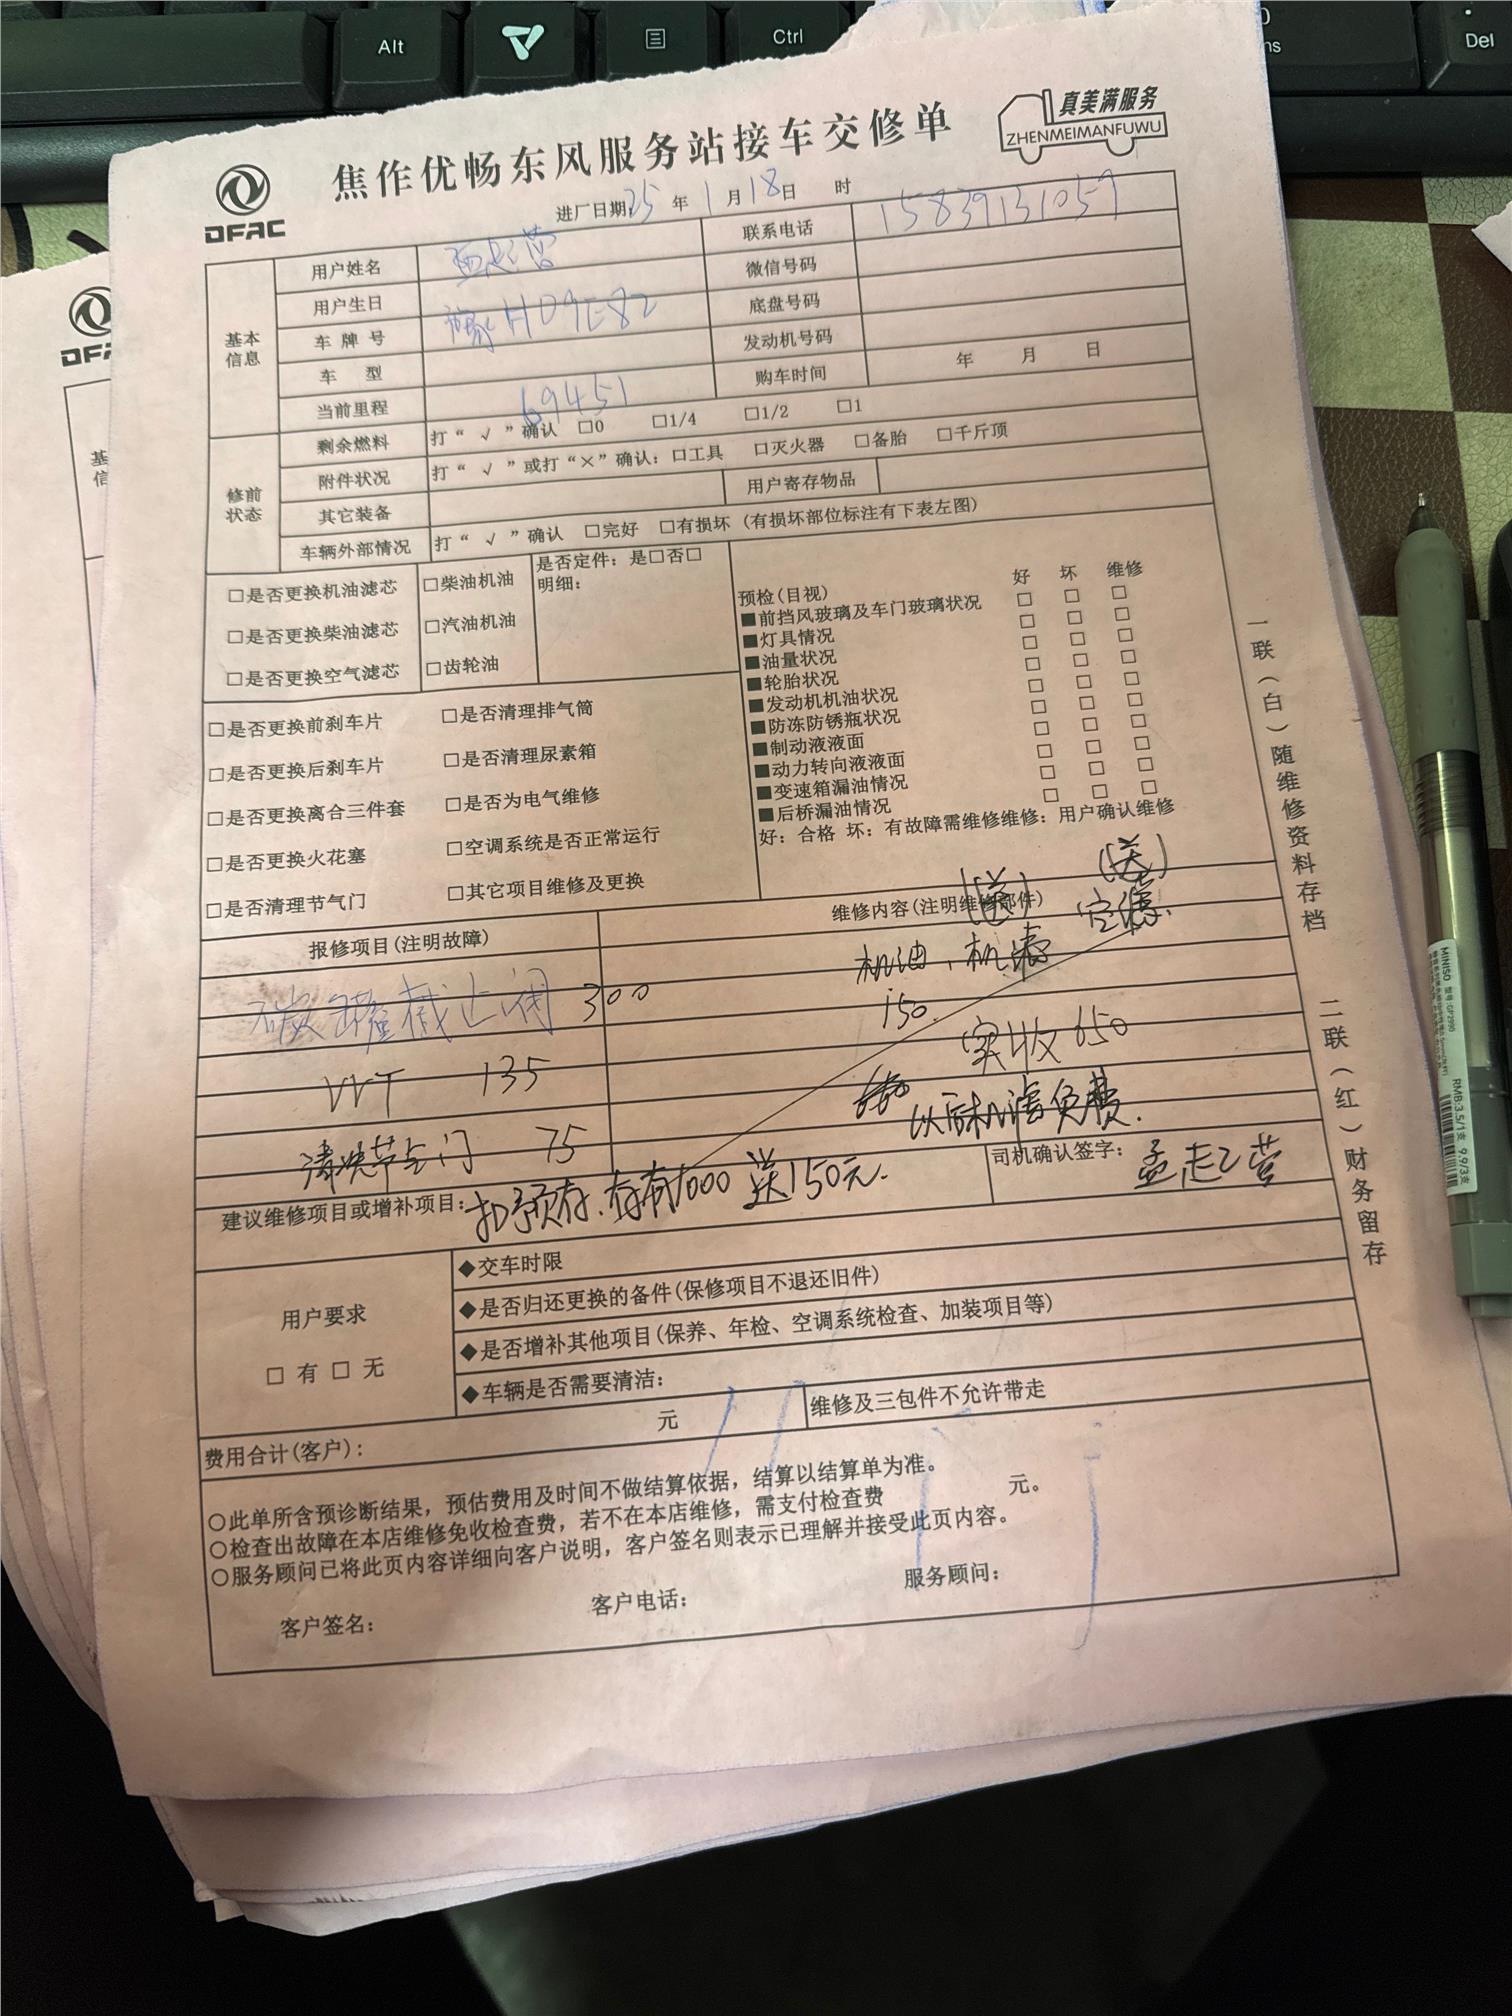 Alt
Ctrl
Del
真美满服务
ZHENMEIMANFUWU
DFAC
焦作优畅东风服务站接车交修单
进厂日期 25 年 1 月 18 日 时
基本信息
用户姓名 孟起营 联系电话 15839131059
用户生日 微信号码
车牌号 豫H09E82 底盘号码
车型 发动机号码
当前里程 69451 购车时间 年 月 日
修前状态
剩余燃料 打“√”确认 □0 □1/4 □1/2 □1
附件状况 打“√”或打“×”确认：□工具 □灭火器 □备胎 □千斤顶
其它装备 用户寄存物品
车辆外部情况 打“√”确认 □完好 □有损坏 (有损坏部位标注有下表左图)
□是否更换机油滤芯 □柴油机油 是否定件：是□否□
明细：
□是否更换柴油滤芯 □汽油机油
□是否更换空气滤芯 □齿轮油
预检(目视) 好 坏 维修
■前挡风玻璃及车门玻璃状况 □ □ □
■灯具情况 □ □ □
■油量状况 □ □ □
■轮胎状况 □ □ □
■发动机机油状况 □ □ □
■防冻防锈瓶状况 □ □ □
■制动液液面 □ □ □
■动力转向液液面 □ □ □
■变速箱漏油情况 □ □ □
■后桥漏油情况 □ □ □
好：合格 坏：有故障需维修维修：用户确认维修
□是否更换前刹车片 □是否清理排气筒
□是否更换后刹车片 □是否清理尿素箱
□是否更换离合三件套 □是否为电气维修
□是否更换火花塞 □空调系统是否正常运行
□是否清理节气门 □其它项目维修及更换
报修项目(注明故障) 维修内容(注明维修部件)
(送) (送)
机油、机滤 空滤
碳罐截止阀 300
150
实收650
VVT 135
以后机滤免费.
清洗节气门 75
建议维修项目或增补项目：扣预存.存有1000 送150元.
司机确认签字： 孟起营
用户要求
□ 有 □ 无
◆交车时限
◆是否归还更换的备件(保修项目不退还旧件)
◆是否增补其他项目(保养、年检、空调系统检查、加装项目等)
◆车辆是否需要清洁：
费用合计(客户)： 元 维修及三包件不允许带走
○此单所含预诊断结果，预估费用及时间不做结算依据，结算以结算单为准。
○检查出故障在本店维修免收检查费，若不在本店维修，需支付检查费 元。
○服务顾问已将此页内容详细向客户说明，客户签名则表示已理解并接受此页内容。
客户签名： 客户电话： 服务顾问：
一联（白）随维修资料存档 二联（红）财务留存
MINISO
RMB:3.5/1支 9.9/3支